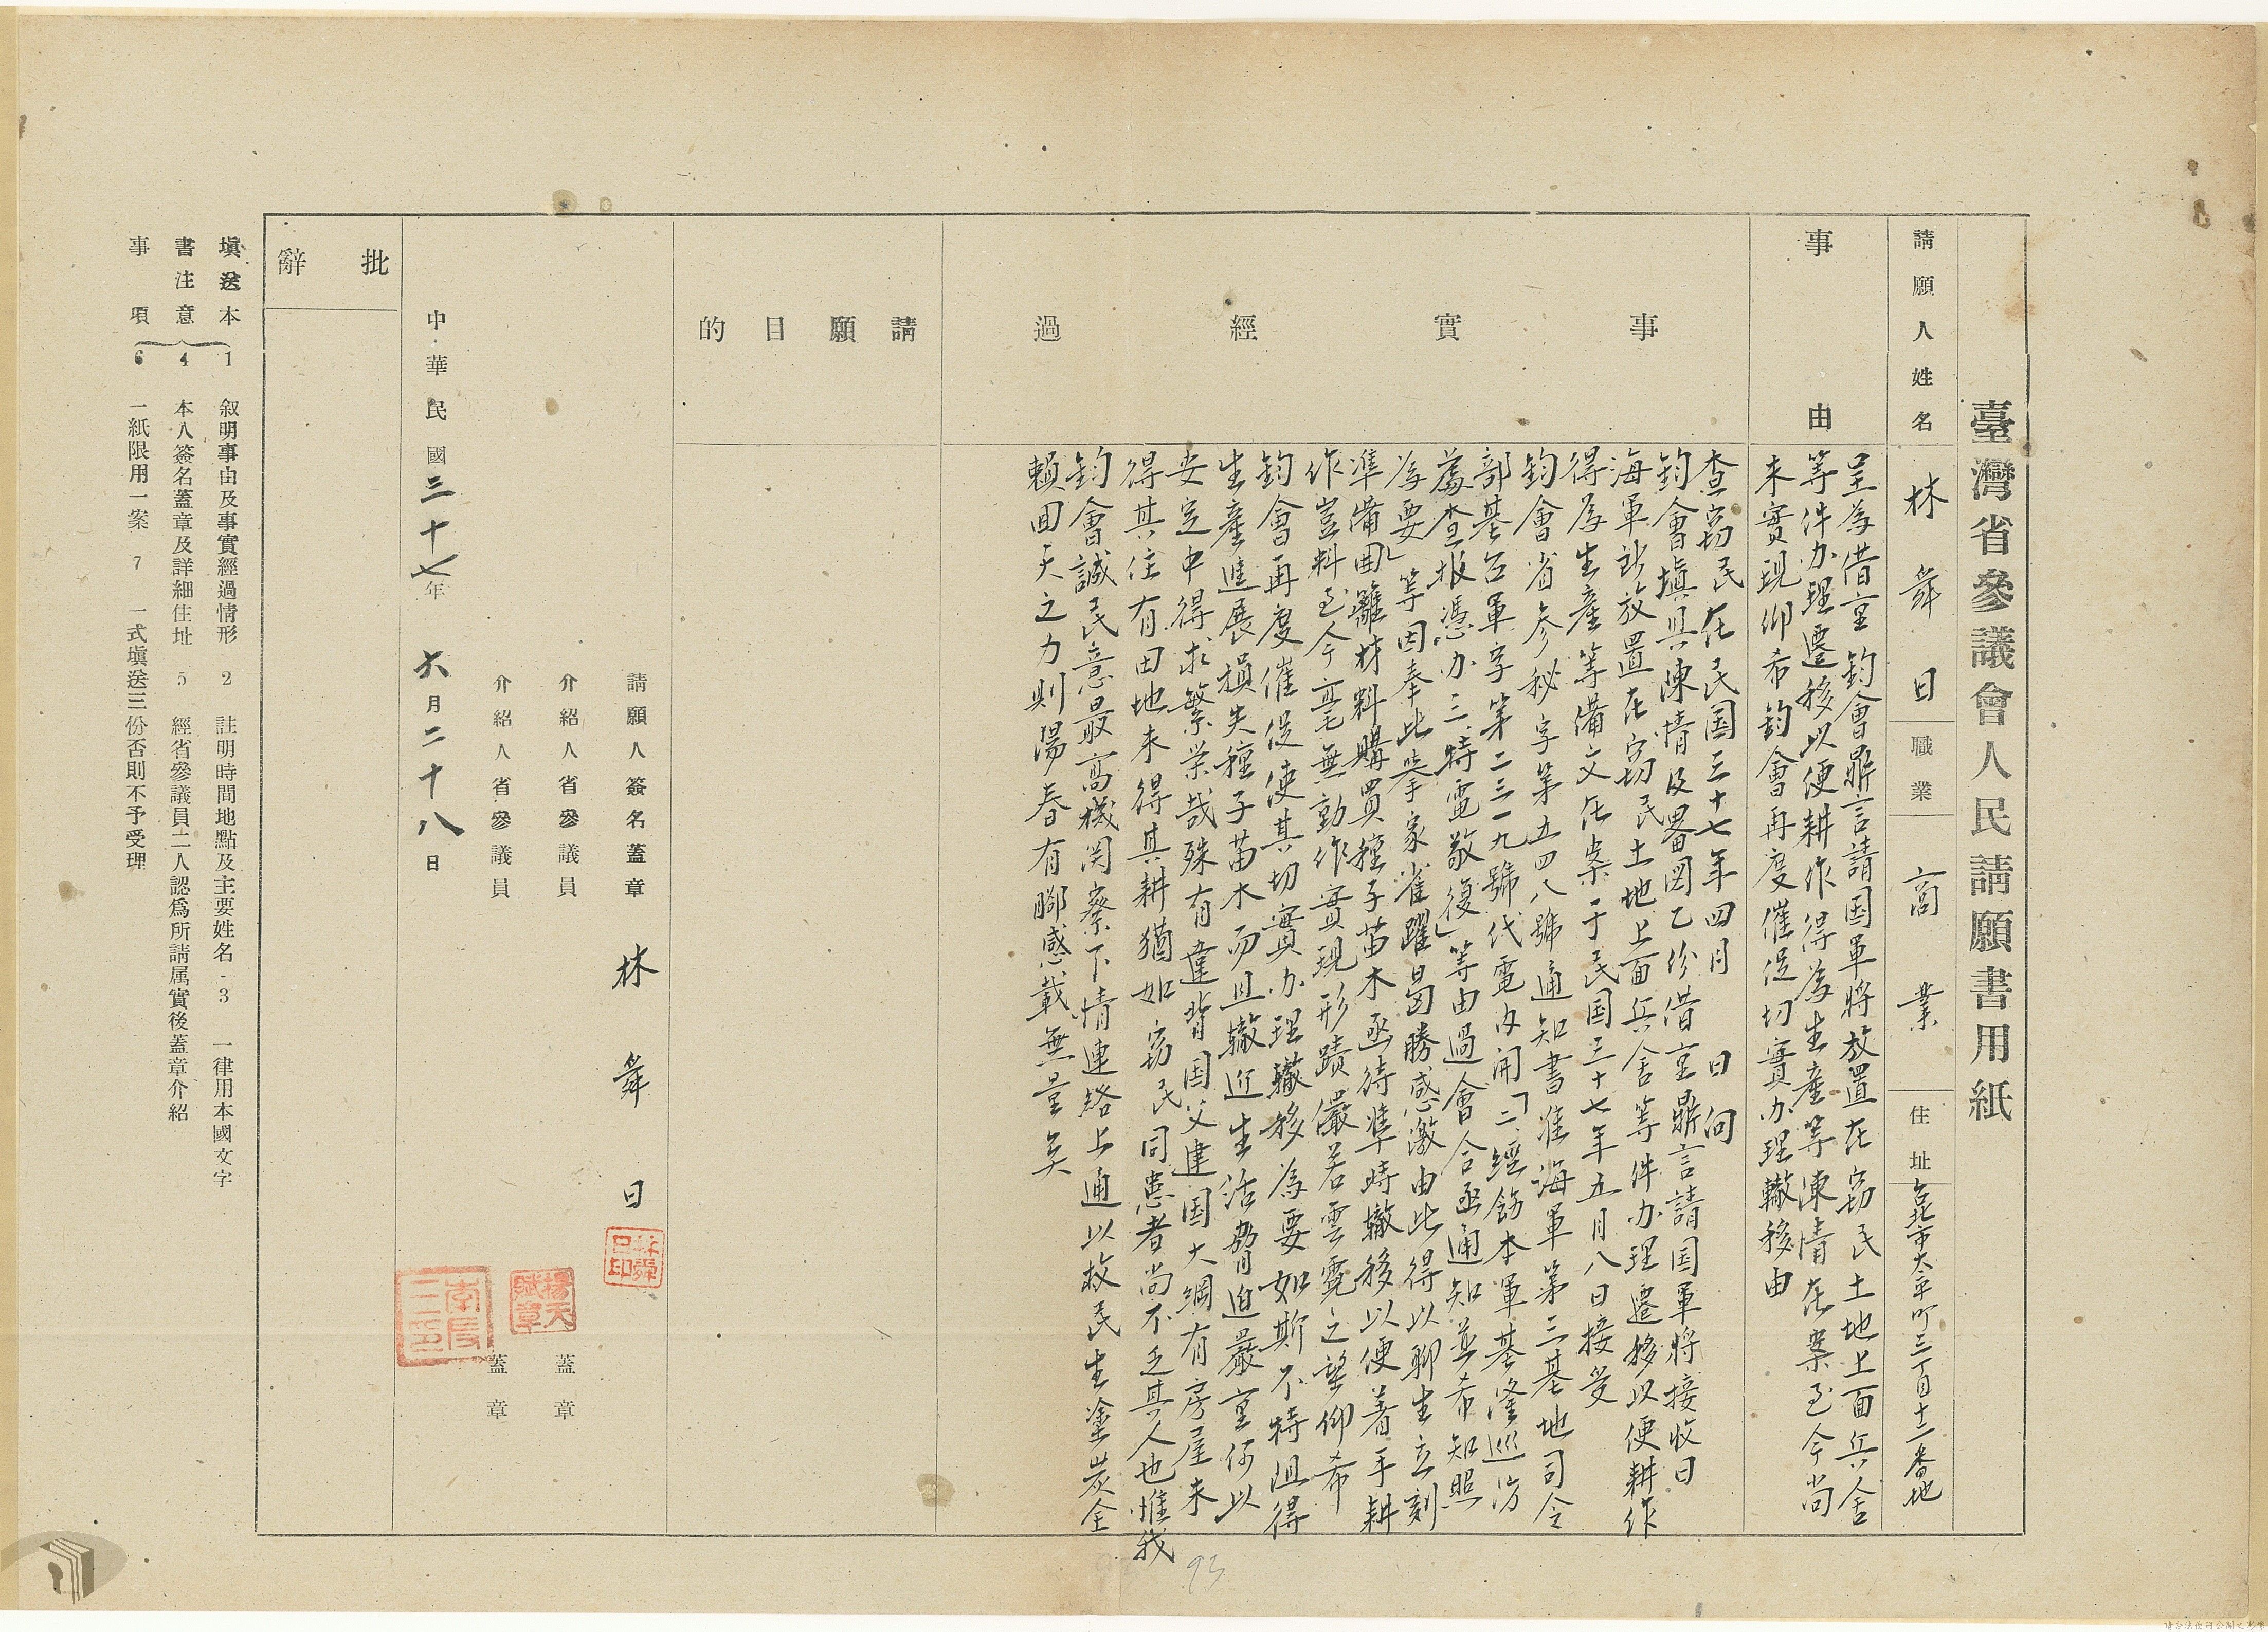 臺灣省參議會人民請願書用紙
請願人姓名 林舜日 職業 商業 住址 台北市大平町三丁目十二番地
事由
呈為借重 鈞會鼎言請国軍將放置在窃民土地上面兵舍
等件办理遷移以便耕作得為生產等陳情在案至今尚
未實現仰希鈞會再度催促切實办理轍移由
事實經過
查窃民在民国三十七年四月 日向
鈞會塡具陳情及畧図乙份借重鼎言請国軍將接收日
海軍所放置在窃民土地上面兵舍等件办理遷移以便耕作
得為生產等備文在案于民国三十七年五月八日接受
鈞會省参秘字第五四八號通知書准海軍第三基地司令
部基召軍字第二三一九號代電內開「二、經飭本軍基隆巡防
處查报憑办三、特電敬復」等由過會合亟通知並希知照
為要」等因奉此舉家雀躍曷勝感激由此得以聊生立刻
準備田離材料購買種子苗木亟待準時轍移以便着手耕
作豈料至今毫無動作實現形蹟儼若雲霓之望仰希
鈞會再度催促使其切實办理轍移為要如斯不特阻得
生產進展損失種子苗木而且轍近生活脅迫嚴重何以
安定中得求繁荣哉殊有違背国父建国大綱有房屋未
得其住有田地未得其耕猶如窃民同患者尚不乏其人也惟我
鈞會誠民意最高機関察下情連絡上通以救民生塗炭全
賴囬天之力則陽春有腳感載無量矣
請願目的
請願人簽名蓋章 林舜日
林舜日印
介紹人省參議員 蓋章
楊天賦章
介紹人省參議員 蓋章
李友三印
中華民國三十七年六月二十八日
批辭
塡送本書注意事項
1 叙明事由及事實經過情形 2 註明時間地點及主要姓名 3 一律用本國文字
4 本人簽名蓋章及詳細住址 5 經省參議員二人認爲所請属實後蓋章介紹
6 一紙限用一案 7 一式塡送三份否則不予受理
93
請合法使用公開之影像